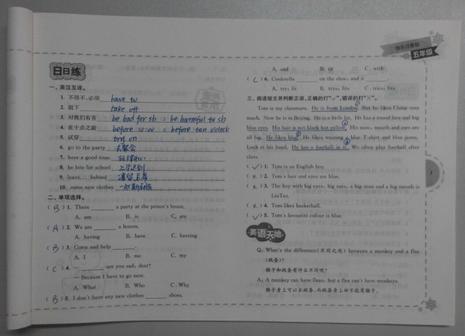 五年级
日日练
一、英汉互译。
1. 不得不,必须 have to
2. 脱下 take off
3. 对我们有害 be bad for sb = be harmful to sb
4. 在十点之前 before
5. 试穿
6. go to the party 去聚会
7. have a good time
8. be late for school 上学迟到
9. leave... behind
10. some new clothes 一些新衣服
二、单项选择。
(B) 1. There ______ a party at the prince's house.
A. am B. is C. are
(A) 2. We are ______ a lesson.
A. having B. have C. having
(B) 3. Come and help ______.
A. I B. me C. my
( ) 4. ______ are you sad, dear?
— Because I have to go now.
A. What B. Who C. Why
(B) 5. I don't have any new clothes ______ shoes.
A. and B. or C. with
( ) 6. Cinderella ______ on the shoe, and it ______.
三、阅读短文并判断正误,正确的打"√",错误的打"×"。
Tom is my classmate. He is from London. But he likes China very
much. Now he is in Beijing. He is a little fat. He has a round face and big
blue eyes. His hair is not black but yellow. His nose, mouth and ears are
all big. He likes blue. He likes wearing a blue T-shirt and blue jeans.
Look at his hand. He has a football in it. We often play football after
class.
( ) 1. Tom is an English boy.
( ) 2. Tom's hair and eyes are blue.
( ) 3. The boy with big eyes, big ears, a big nose and a big mouth is
LiuTao.
( ) 4. Tom likes basketball.
( ) 5. Tom's favourite colour is blue.
英语天地
Q: What's the difference(不同之处) between a monkey and a flea
(跳蚤)?
猴子和跳蚤有什么不同呢?
A: A monkey can have fleas, but a flea can't have monkeys.
猴子身上可以有跳蚤,而跳蚤身上却不能有猴子。